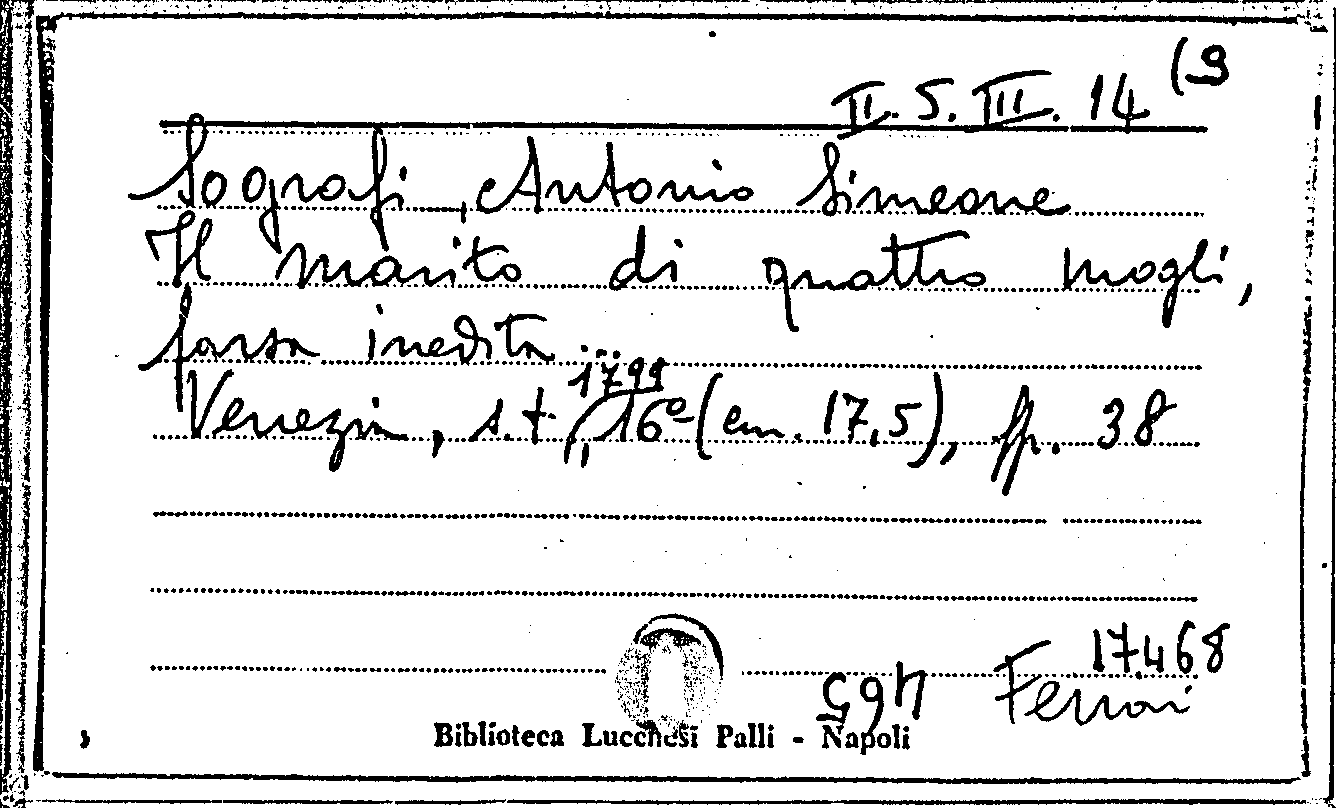 II. 5. III. 14 (9
Sografi, Antonio Simeone
Il marito di quattro mogli,
farsa inedita...
1799
Venezia, s.t., 16° (cm. 17,5), pp. 38
17468
465 Ferrari
Biblioteca Lucchesi Palli - Napoli